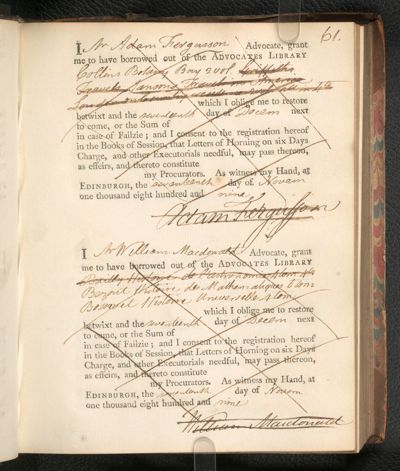 61.
I Mr Adam Fergusson Advocate, grant
me to have borrowed out of the ADVOCATES LIBRARY
Collins Botany Bay 2 vol
Travels in America
which I oblige me to restore
betwixt and the seventeenth day of Decem next
to come, or the Sum of
in case of Failzie; and I consent to the registration hereof
in the Books of Session, that Letters of Horning on six Days
Charge, and other Executorials needful, may pass thereon,
as effeirs, and thereto constitute
my Procurators. As witness my Hand, at
EDINBURGH, the seventeenth day of Novem
one thousand eight hundred and nine
Adam Fergusson
I Mr William Macdonald Advocate, grant
me to have borrowed out of the ADVOCATES LIBRARY
Bailly Histoire de l'Astronomie 4 tom 4to
Histoire de Mathematiques 2 tom
Histoire Universelle 2 tom
which I oblige me to restore
betwixt and the seventeenth day of Decem next
to come, or the Sum of
in case of Failzie; and I consent to the registration hereof
in the Books of Session, that Letters of Horning on six Days
Charge, and other Executorials needful, may pass thereon,
as effeirs, and thereto constitute
my Procurators. As witness my Hand, at
EDINBURGH, the seventeenth day of Novem
one thousand eight hundred and nine
William Macdonald